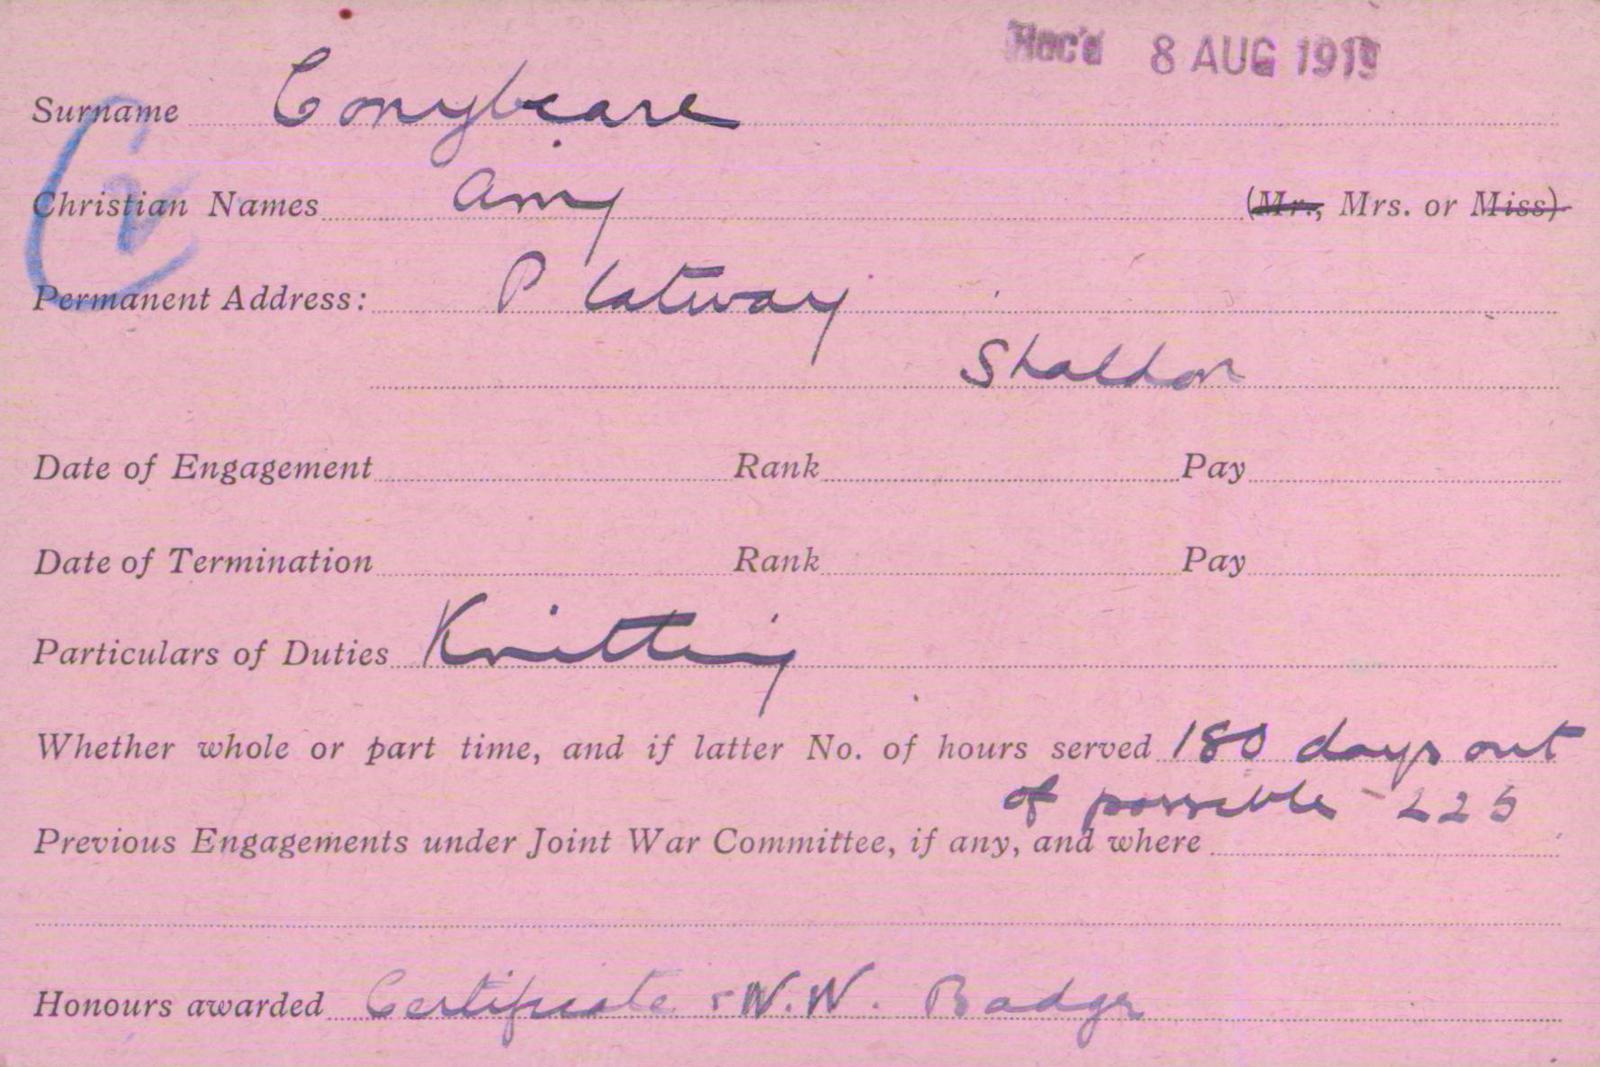 Rec'd 8 AUG 1919
Surname Conybeare
Christian Names Amy (Mr., Mrs. or Miss)
Permanent Address: Platway
Shaldon
Date of Engagement Rank Pay
Date of Termination Rank Pay
Particulars of Duties Knitting
Whether whole or part time, and if latter No. of hours served 180 days out
of possible - 225
Previous Engagements under Joint War Committee, if any, and where
Honours awarded Certificate & W.W. Badge